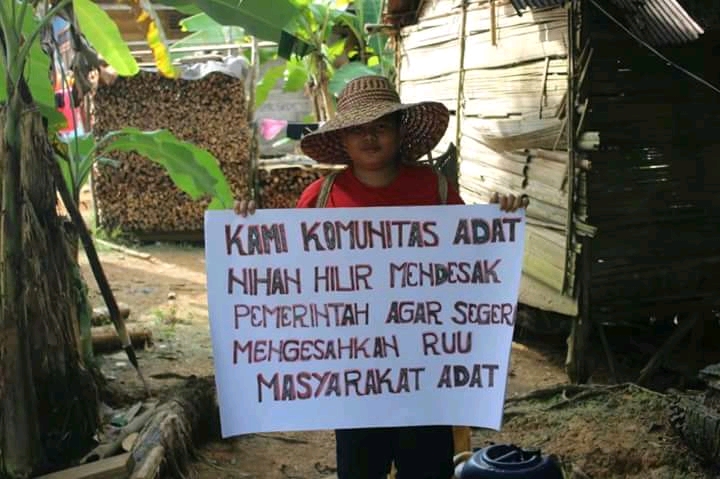 KAMI KOMUNITAS ADAT
NIHAN HILIR MENDESAK
PEMERINTAH AGAR SEGERA
MENGESAHKAN RUU
MASYARAKAT ADAT